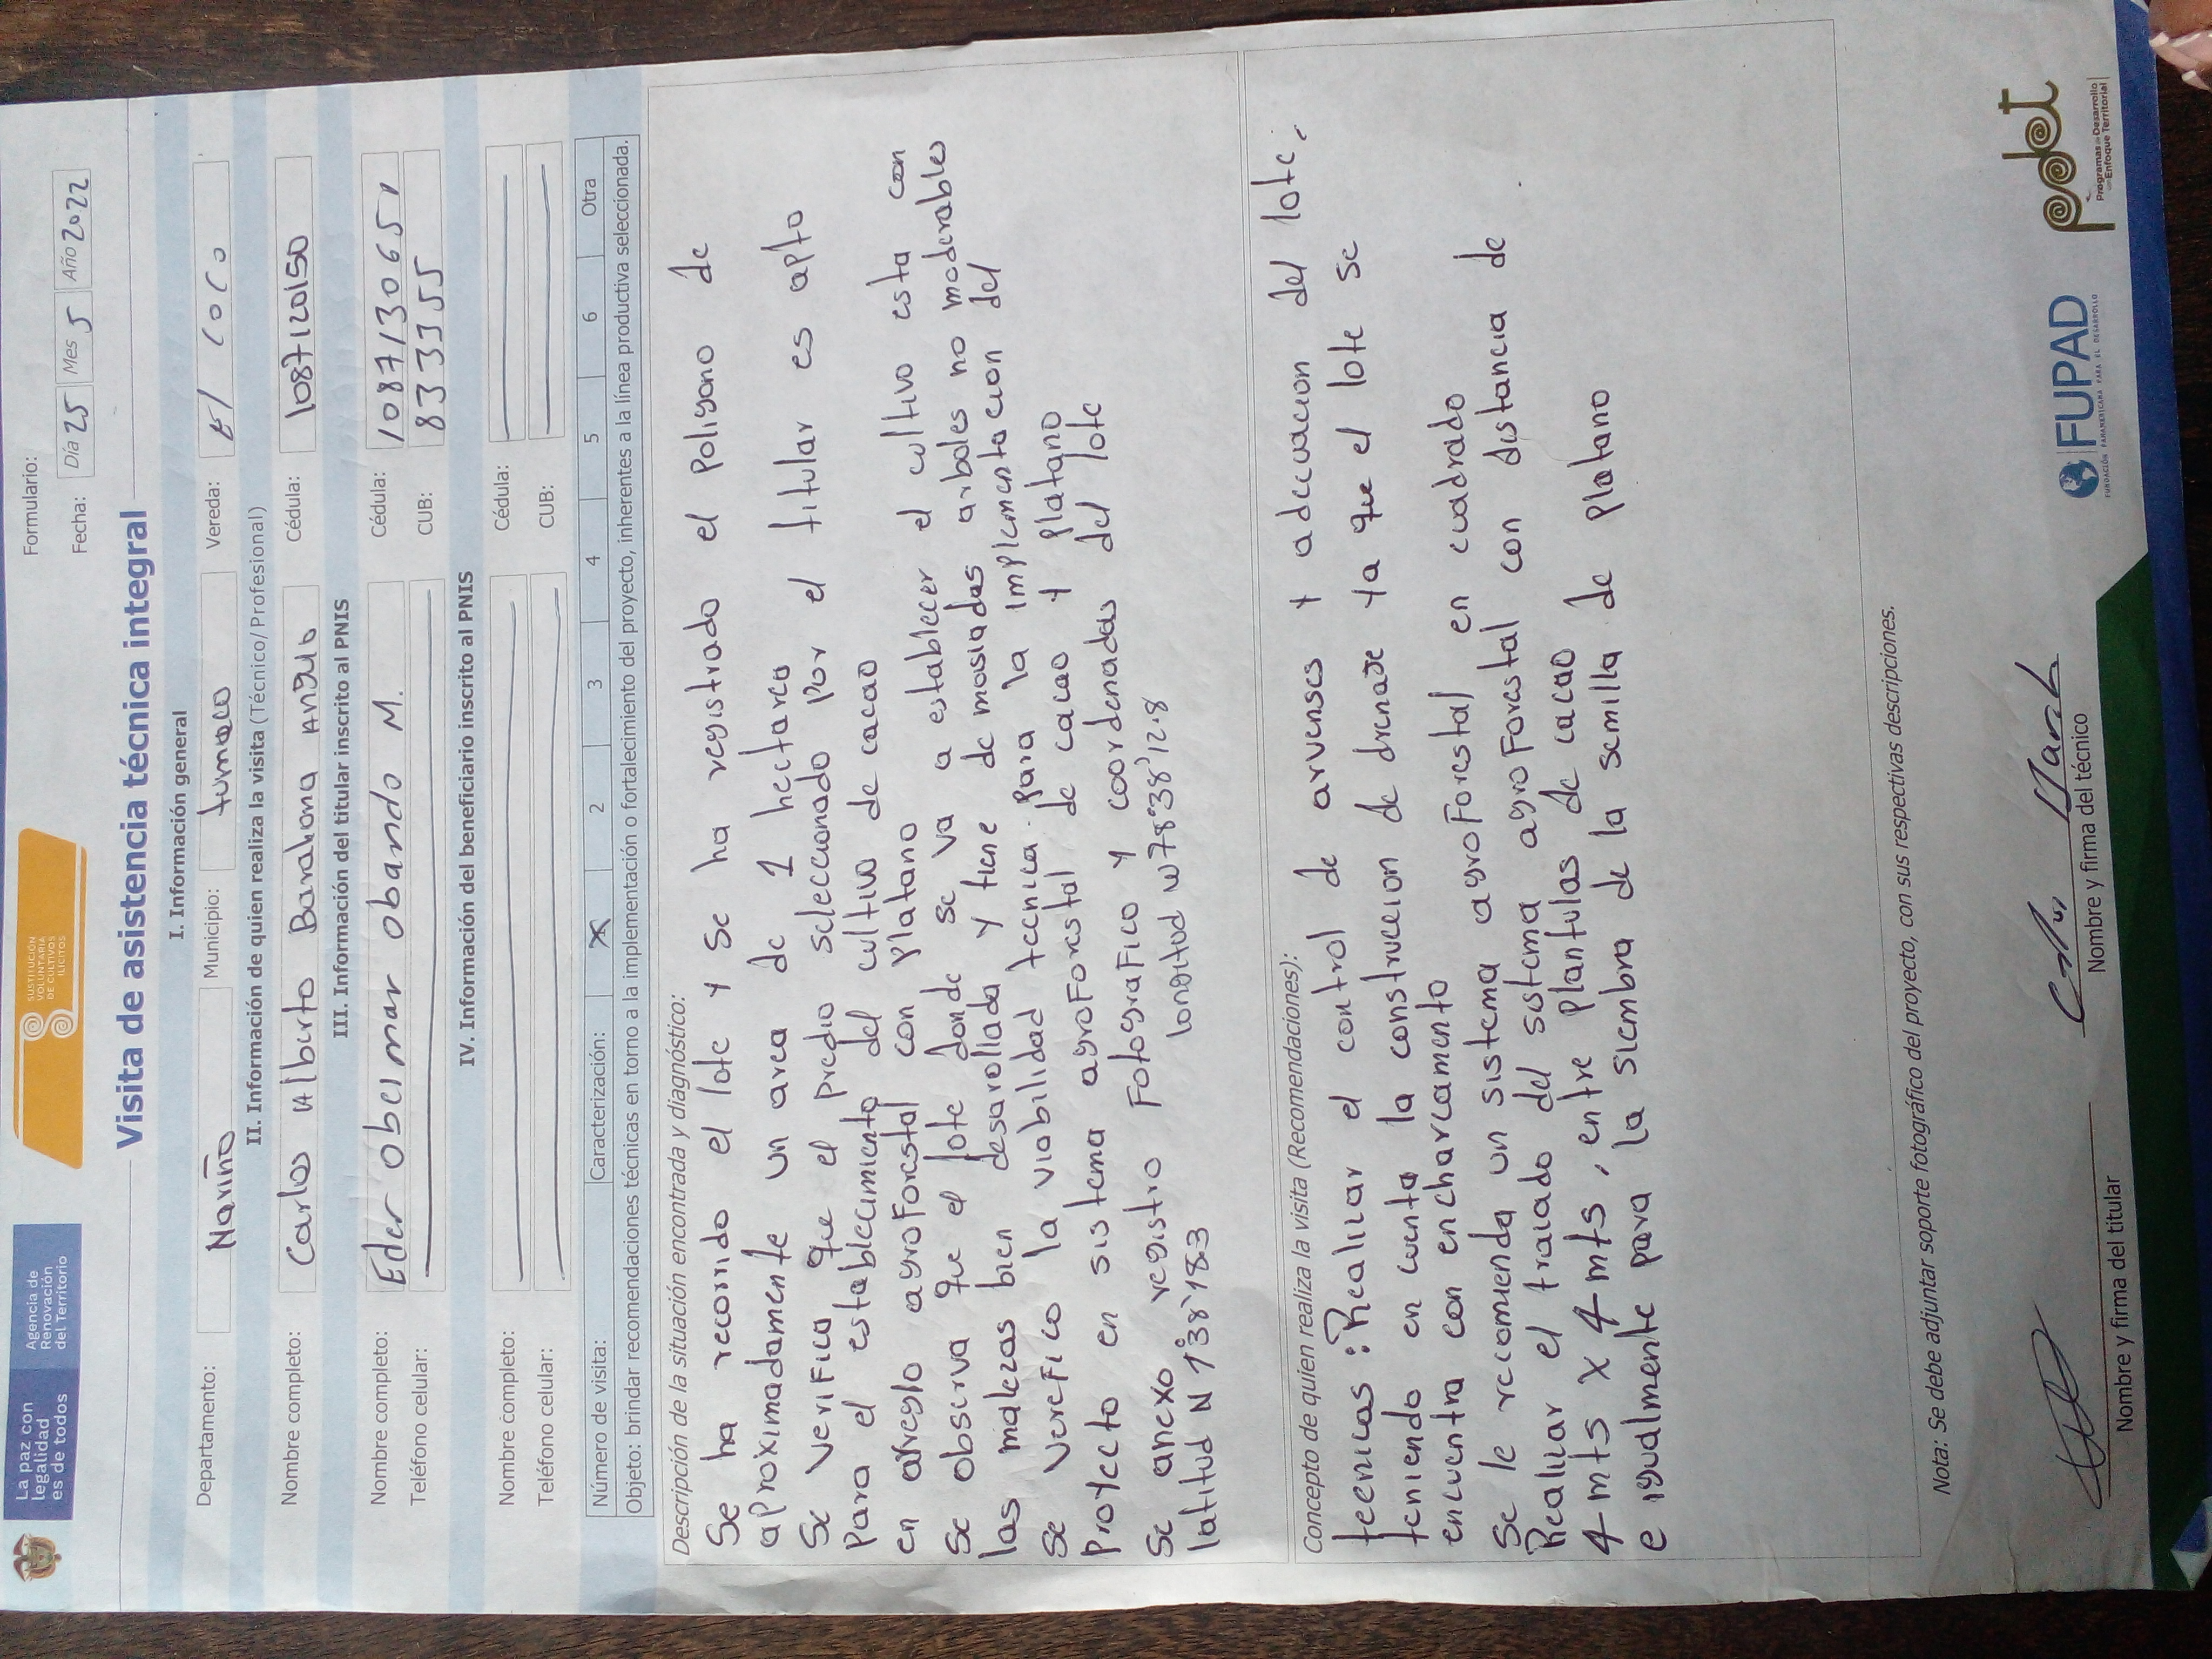 La paz con
legalidad
es de todos
Agencia de
Renovación
del Territorio
SUSTITUCIÓN
VOLUNTARIA
DE CULTIVOS
ILÍCITOS
Formulario:
Fecha: Día 25 Mes 5 Año 2022
Visita de asistencia técnica integral
I. Información general
Departamento: Nariño Municipio: tumaco Vereda: El coco
II. Información de quien realiza la visita (Técnico/Profesional)
Nombre completo: Carlos Alberto Barahona Angulo Cédula: 1087120150
III. Información del titular inscrito al PNIS
Nombre completo: Eder obeimar obando M. Cédula: 1087130651
Teléfono celular: CUB: 8333355
IV. Información del beneficiario inscrito al PNIS
Nombre completo: Cédula:
Teléfono celular: CUB:
Número de visita: Caracterización: X 2 3 4 5 6 Otra
Objeto: brindar recomendaciones técnicas en torno a la implementación o fortalecimiento del proyecto, inherentes a la línea productiva seleccionada.
Descripción de la situación encontrada y diagnóstico:
Se ha recorrido el lote y se ha registrado el poligono de
aproximadamente un area de 1 hectarea
Se verifico que el predio seleccionado por el titular es apto
para el establecimiento del cultivo de cacao
en arreglo agroforestal con platano
Se observa que el lote donde se va a establecer el cultivo esta con
las malezas bien desarollada y tiene demasiadas arboles no moderables
Se verefico la viabilidad tecnica para la implementacion del
proyecto en sistema agroforestal de cacao y platano
Se anexo registro fotografico y coordenadas del lote
latitud N 1°38'18.3 longitud w78°38'12.8
Concepto de quien realiza la visita (Recomendaciones):
tecnicas: Realizar el control de arvenses y adecuacion del lote,
teniendo en cuenta la construccion de drenaje ya que el lote se
encuentra con encharcamento
Se le recomienda un sistema agroforestal en cuadrado
Realizar el traiado del sistema agroforestal con distancia de
4 mts x 4 mts, entre plantulas de cacao
e igualmente para la siembra de la semilla de platano
Nota: Se debe adjuntar soporte fotográfico del proyecto, con sus respectivas descripciones.
Nombre y firma del titular
Nombre y firma del técnico
FUPAD
FUNDACIÓN PANAMERICANA PARA EL DESARROLLO
pdet
Programas de Desarrollo
con Enfoque Territorial